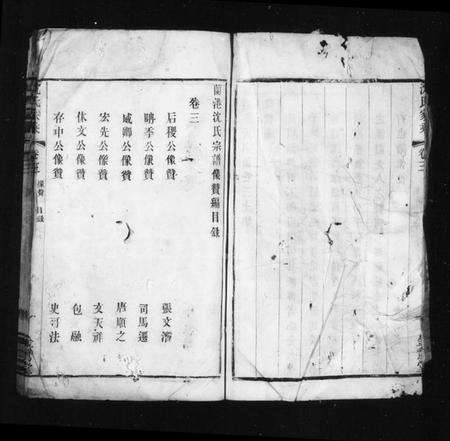 蘭港沈氏宗譜像贊編目錄
卷三
后稷公像贊 張文潛
聃季公像贊 司馬遷
咸卿公像贊 唐順之
宏先公像贊 文天祥
休文公像贊 包融
存中公像贊 史可法
像贊 目錄
沈氏家乘 卷三